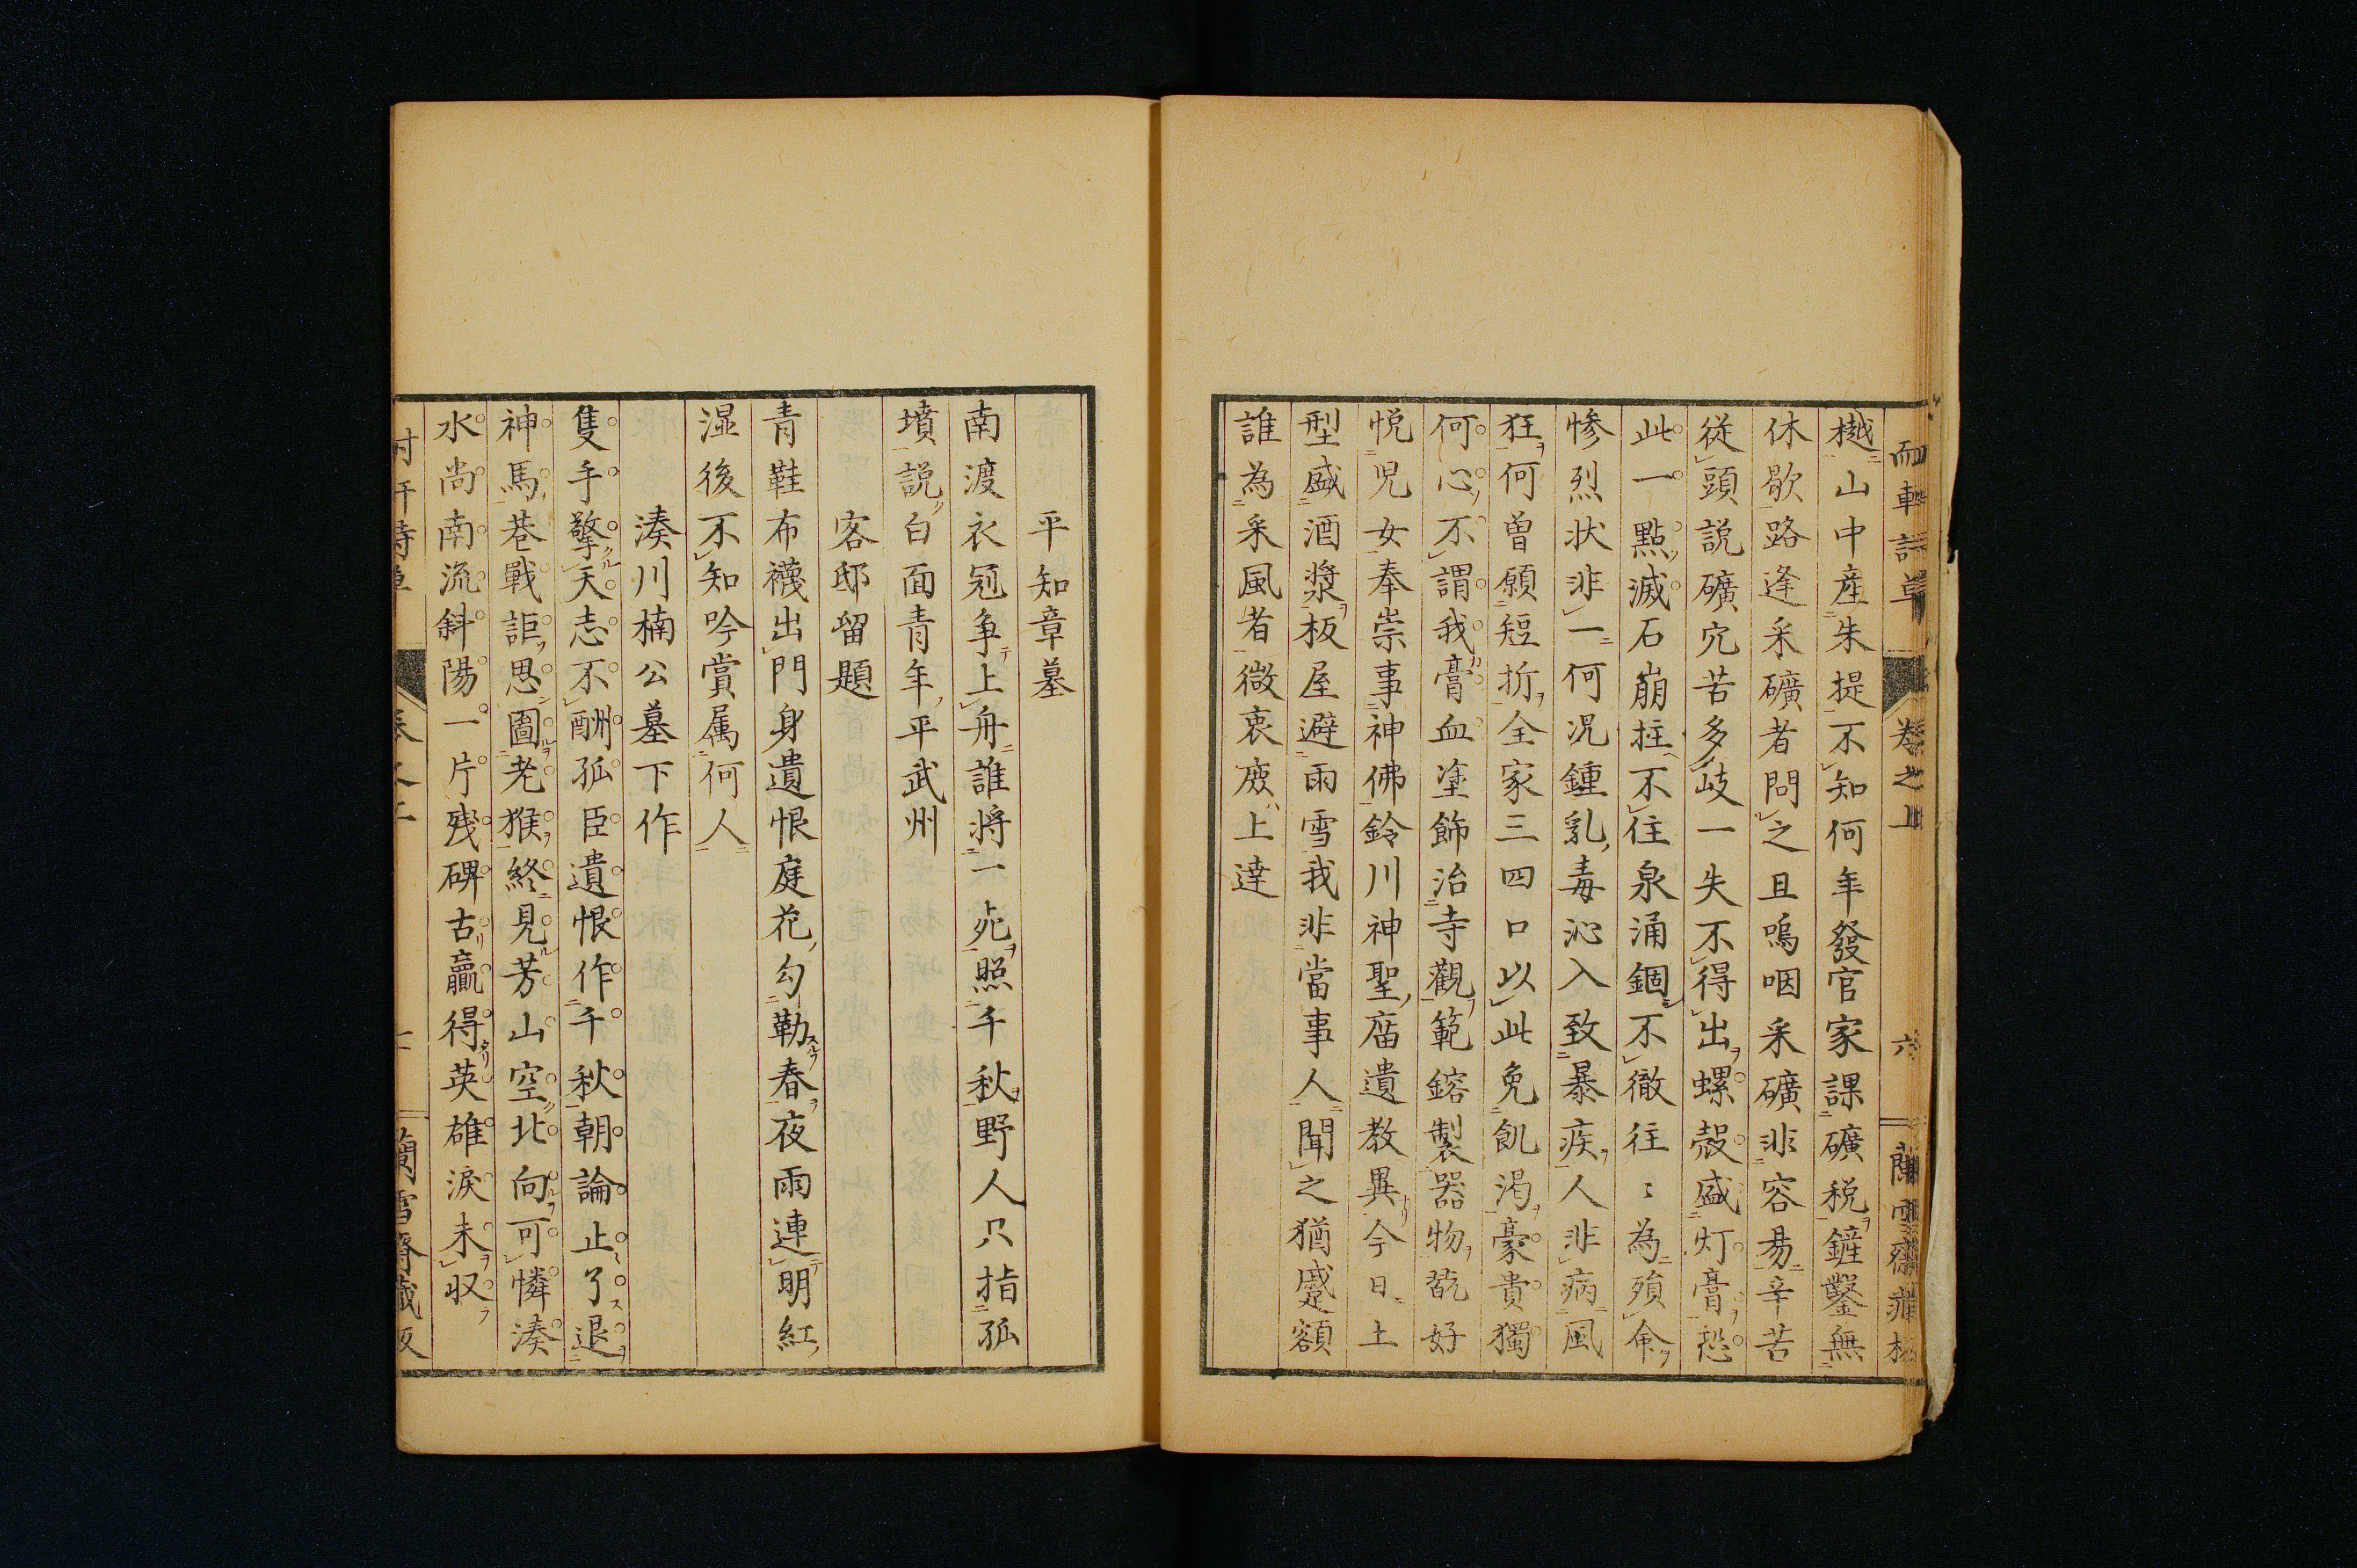 樾山中産朱提不知何年發官家課礦税鏟鑿無
休歇路逢采礦者問之且嗚咽采礦非容易辛苦
從頭説礦穴苦多岐一失不得出螺殻盛灯膏恐
此一點滅石崩拄不住泉涌錮不徹往〻為殞命
惨烈状非一何况鍾乳毒沁入致暴疾人非病風
狂何曽願短折全家三四口以此免飢渇豪貴獨
何心不謂我膏血塗飾治寺觀範鎔製器物翫好
悦児女奉崇事神佛鈴川神聖庿遺教異今日土
型盛酒漿板屋避雨雪我非當事人聞之猶蹙額
誰為采風者微衷庻上達
卷之上
六
平知章墓
南渡衣冠争上舟誰将一死照千秋野人只指孤
墳説白面青年平武州
客邸留題
青鞋布襪出門身遺恨庭花勾勒春夜雨連明紅
湿後不知吟賞属何人
湊川楠公墓下作
隻手擎天志不酬孤臣遺恨作千秋朝論止了退
神馬巷戰詎思圖老猴終見芳山空北向可憐湊
水尚南流斜陽一片残碑古贏得英雄涙未収